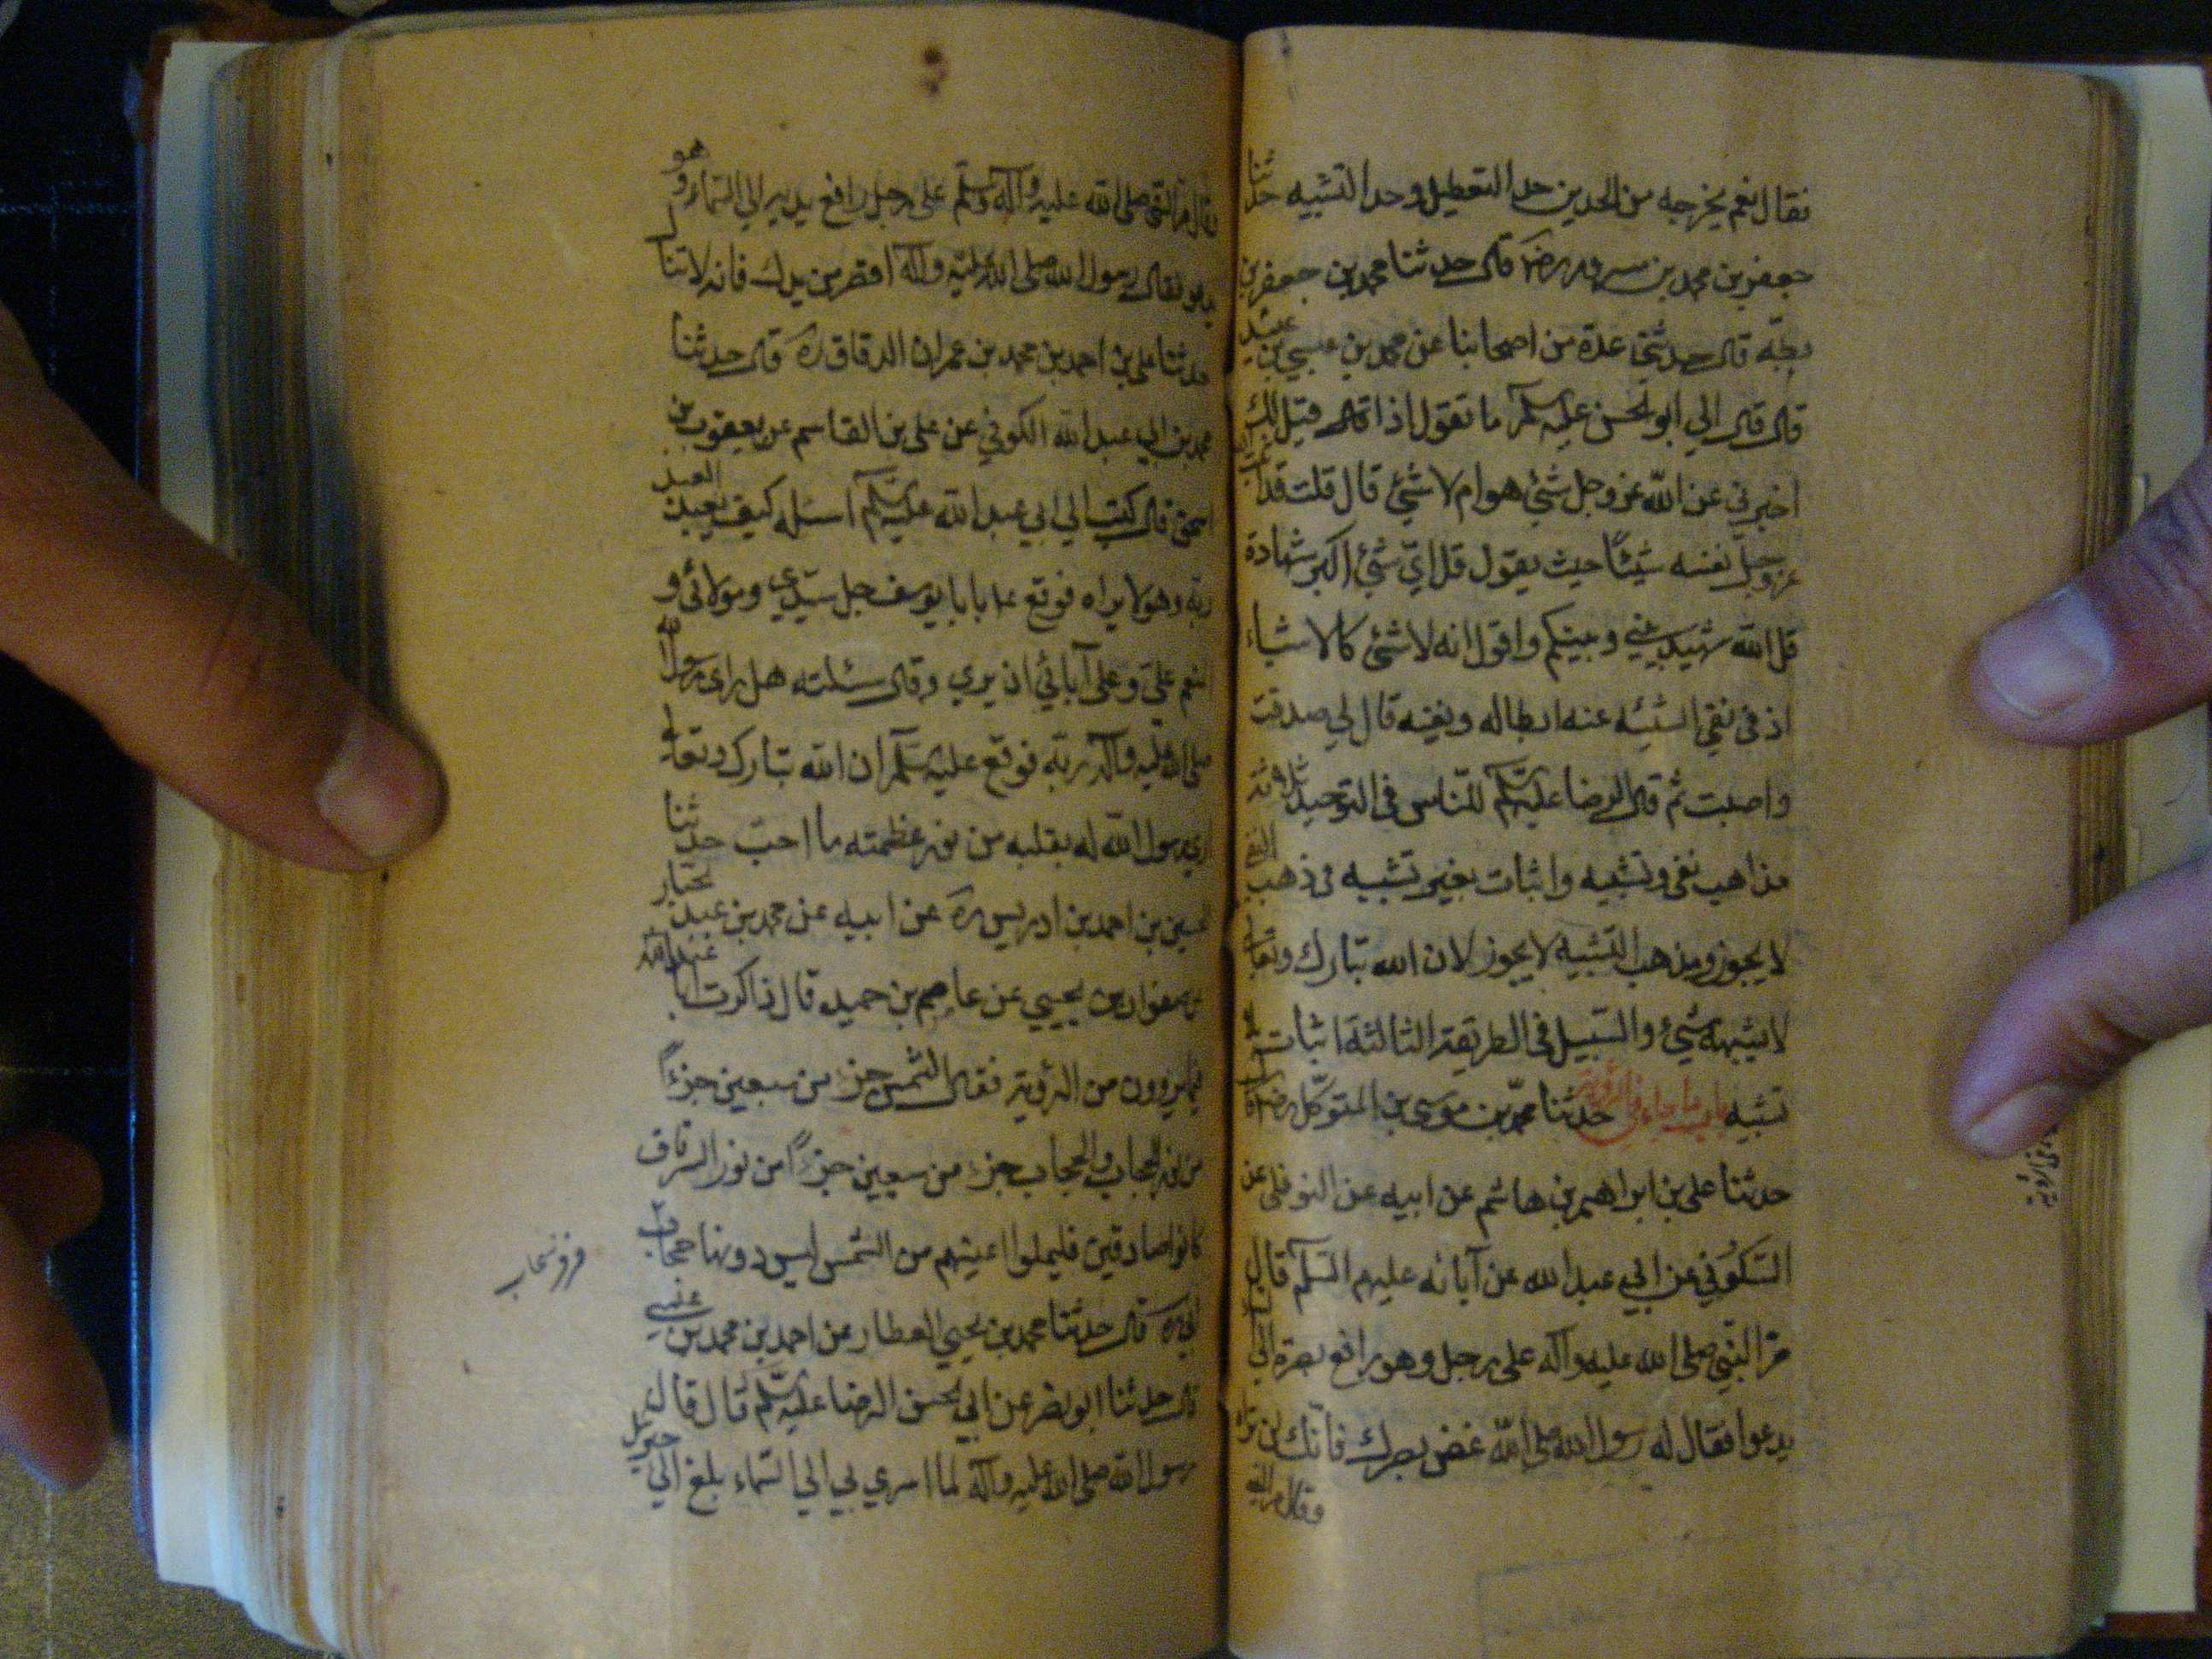 فقال نعم يخرجه من الحدين حد التعطيل وحد التشبيه حدثنا
جعفر بن محمد بن مسرور رضه قال حدثنا محمد بن جعفر بن
بطة قال حدثني عدة من اصحابنا عن محمد بن عيسى بن عبيد
قال قال لي ابو الحسن عليه السلم ما تقول اذا قال قيل لك
اخبرني عن الله عز وجل شئ هو ام لا شئ قال قلت قد اثبت الله
عز وجل نفسه شيئا حيث يقول قل اي شئ اكبر شهادة
قل الله شهيد بيني وبينكم واقول انه لا شئ كالاشياء
اذ في نفي الشيئه عنه ابطاله ونفيه قال لي صدقت
واصبت ثم قال الرضا عليه السلم للناس في التوحيد ثلاثة
مذاهب نفي وتشبيه واثبات بغير تشبيه فمذهب النفي
لا يجوز ومذهب التشبيه لا يجوز لان الله تبارك وتعالى
لا يشبهه شئ والسبيل في الطريقة الثالثة اثبات بلا
تشبيه باب ما جاء في الرؤية حدثنا محمد بن موسى بن المتوكل رضه قال
حدثنا علي بن ابراهيم بن هاشم عن ابيه عن النوفلي عن
السكوني عن ابي عبد الله عن آبائه عليهم السلم قال
مر النبي صلى الله عليه وآله على رجل وهو رافع بصره الى السماء
يدعوا فقال له رسول الله صلى الله غض بصرك فانك لن تراه
وقال مر النبي
وقال مر النبي صلى الله عليه وآله وسلم على رجل رافع يديه الي السماء وهو
يدعو فقال رسول الله صلى الله عليه وآله اقصر من يدك فانه لا تناله
حدثنا علي بن احمد بن محمد بن عمران الدقاق ره قال حدثنا
محمد بن ابي عبد الله الكوفي عن علي بن القاسم عن يعقوب بن
اسحق قال كتبت الي ابي عبد الله عليه السلم اسئله كيف يعبد العبد
ربه وهو لا يراه فوقع يا با يوسف جل سيدي ومولائي و
المنعم علي وعلى آبائي ان يري وقال سئلته هل راى رسول الله
صلى الله عليه وآله ربه فوقع عليه السلم ان الله تبارك وتعالى
اري رسول الله له بقلبه من نور عظمته ما احب حدثنا
الحسين بن احمد بن ادريس ره عن ابيه عن محمد بن عبد الجبار
عن صفوان بن يحيي عن عاصم بن حميد قال ذاكرت ابا عبد الله
فيما يروون من الرؤية فقال الشمس جزء من سبعين جزءاً
من نور الحجاب والحجاب جزء من سبعين جزءاً من نور الستر فان
كانوا صادقين فليملوا اعينهم من الشمس ليس دونها حجاب
ابي ره قال حدثنا محمد بن يحيي العطار عن احمد بن محمد بن عيسى
قال حدثنا ابو نصر عن ابي الحسن الرضا عليه السلم قال قال
رسول الله صلى الله عليه وآله لما اسري بي الي السماء بلغ الي جبرئيل